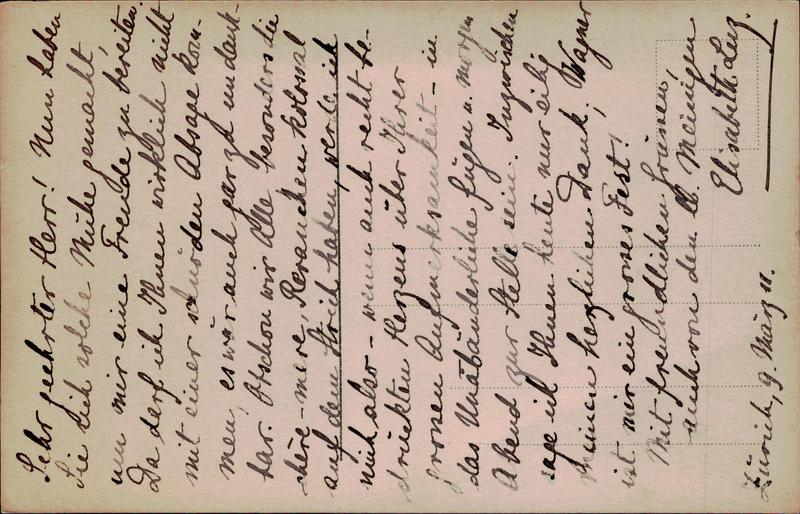 Sehr geehrter Herr! Nun haben
Sie sich solche Mühe gemacht,
um mir eine Freude zu bereiten.
Da darf ich Ihnen wirklich nicht
mit einer schnöden Absage kom-
men, es wär auch gar zu undank-
bar. Obschon wir Alle besonders die
chère-mère, Revanchen kolossal
auf dem Strich haben, werde ich
mich also – wenn auch recht be-
drückten Herzens über Ihrer
grossen Aufmerksamkeit – in
das Unabänderliche fügen u. morgen
Abend zur Stelle sein. Inzwischen
sage ich Ihnen heute nur eilig
meinen herzlichen Dank. Wagner
ist mir ein grosses Fest!
Mit freundlichen Grüssen,
auch von den Meinigen
Elisabeth Lenz.
Zürich, 9. März 11.